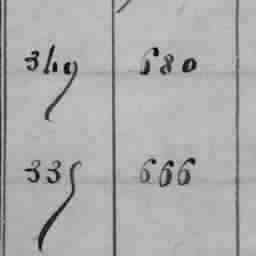 349 680
335 666